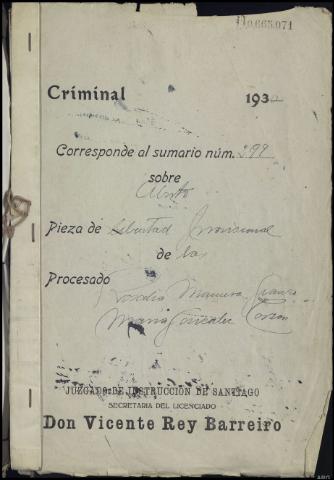 110,665,071
Criminal 193
Corresponde al sumario núm. 299
sobre
Pieza de Libertad Provisional
de las
Procesado
Rosalía
María González
JUZGADO DE INSTRUCCIÓN DE SANTIAGO
SECRETARIA DEL LICENCIADO
Don Vicente Rey Barreiro